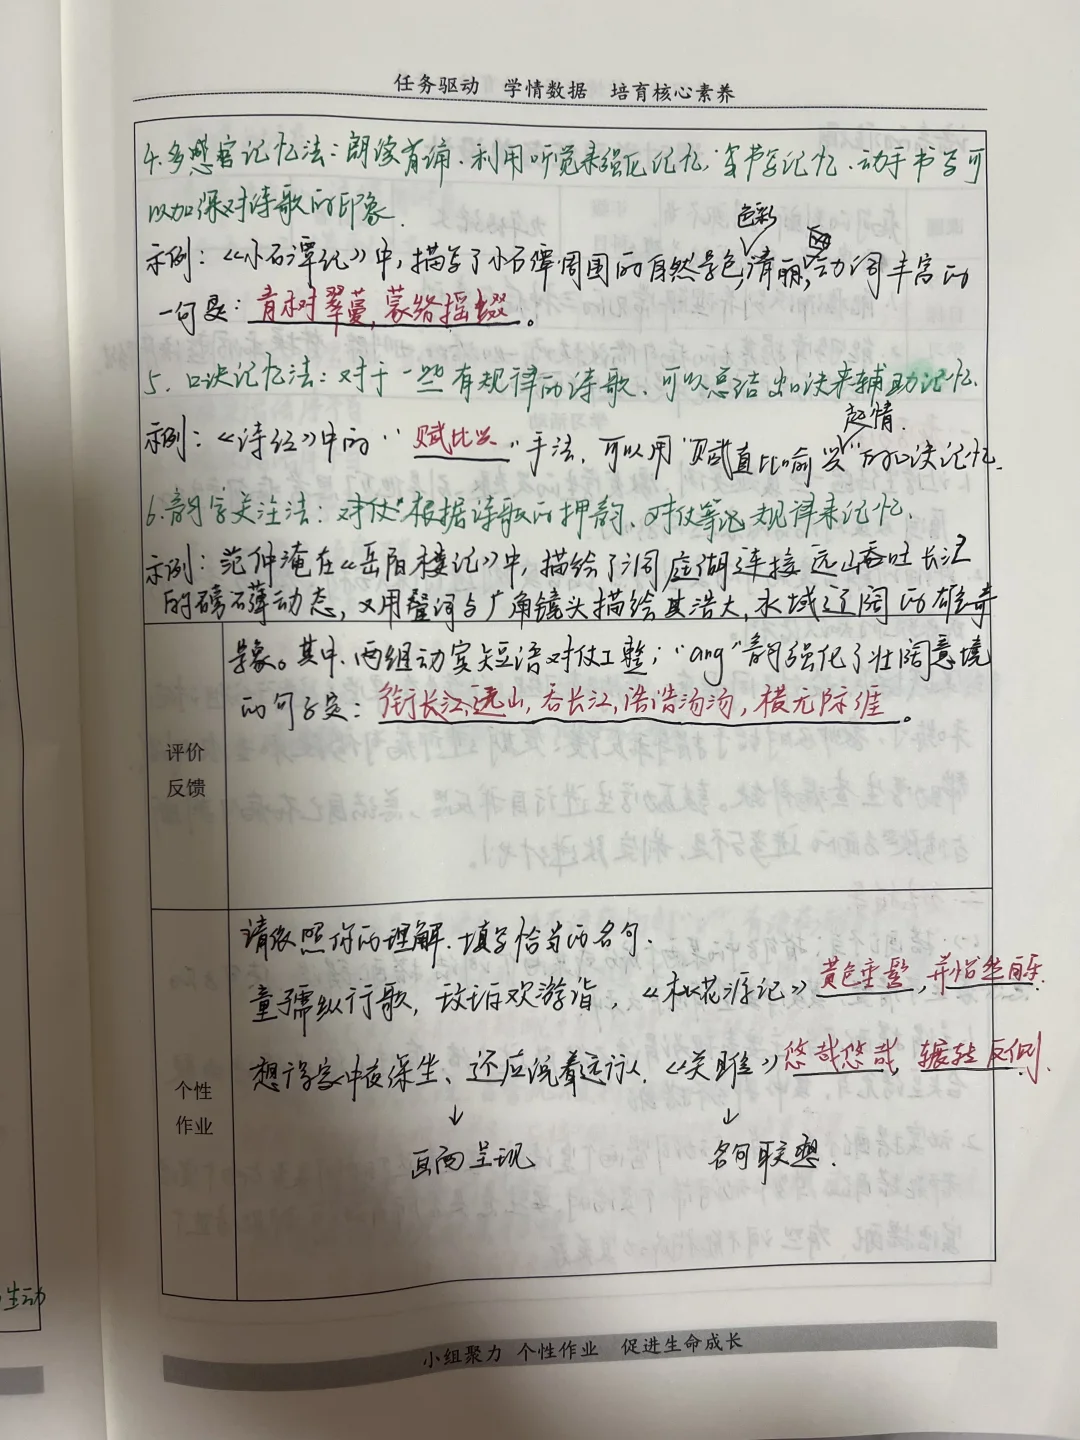 任务驱动 学情数据 培育核心素养
4.多感官记忆法：朗读背诵、利用听觉来强化记忆，写书写记忆、动手书写可
以加深对诗歌的印象.
色彩
示例：《小石潭记》中，描写了小石潭周围的自然景色，清丽，动词丰富的
一句是：青树翠蔓，蒙络摇缀。
5. 口诀记忆法：对于一些有规律的诗歌、可以总结出口诀来辅助记忆.
起情.
示例：《诗经》中的“赋比兴”手法，可以用“赋直比喻兴”的口诀记忆.
6.韵字关注法：对仗 根据诗歌的押韵、对仗等规律来记忆.
示例：范仲淹在《岳阳楼记》中，描绘了洞庭湖连接远山吞吐长江
的磅礴动态，又用叠词与广角镜头描绘其浩大，水域辽阔的雄奇
景象。其中、两组动宾短语对仗工整；“ang”韵强化了壮阔意境
的句子是：衔远山，吞长江，浩浩汤汤，横无际涯。
评价
反馈
请依照你的理解、填写恰当的名句.
童孺纵行歌，斑白欢游诣，《桃花源记》黄色垂髫，并怡然自乐.
想得家中夜深坐、还应说着远行人.《关雎》悠哉悠哉，辗转反侧.
↓ ↓
画面呈现 名句联想.
个性
作业
生动
小组聚力 个性作业 促进生命成长